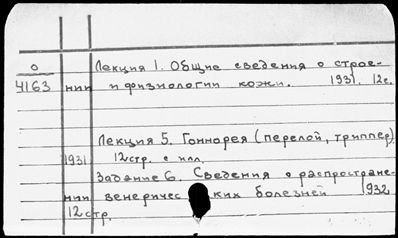 о Лекция 1. Общие сведения о строе-
4163 нии и физиологии кожи. 1931. 12с.
Лекция 5. Гоннорея (перелой, триппер).
1931. 12стр. с илл.
Задание 6. Сведения о распростране-
нии венеричес ких болезней 1932
12стр.